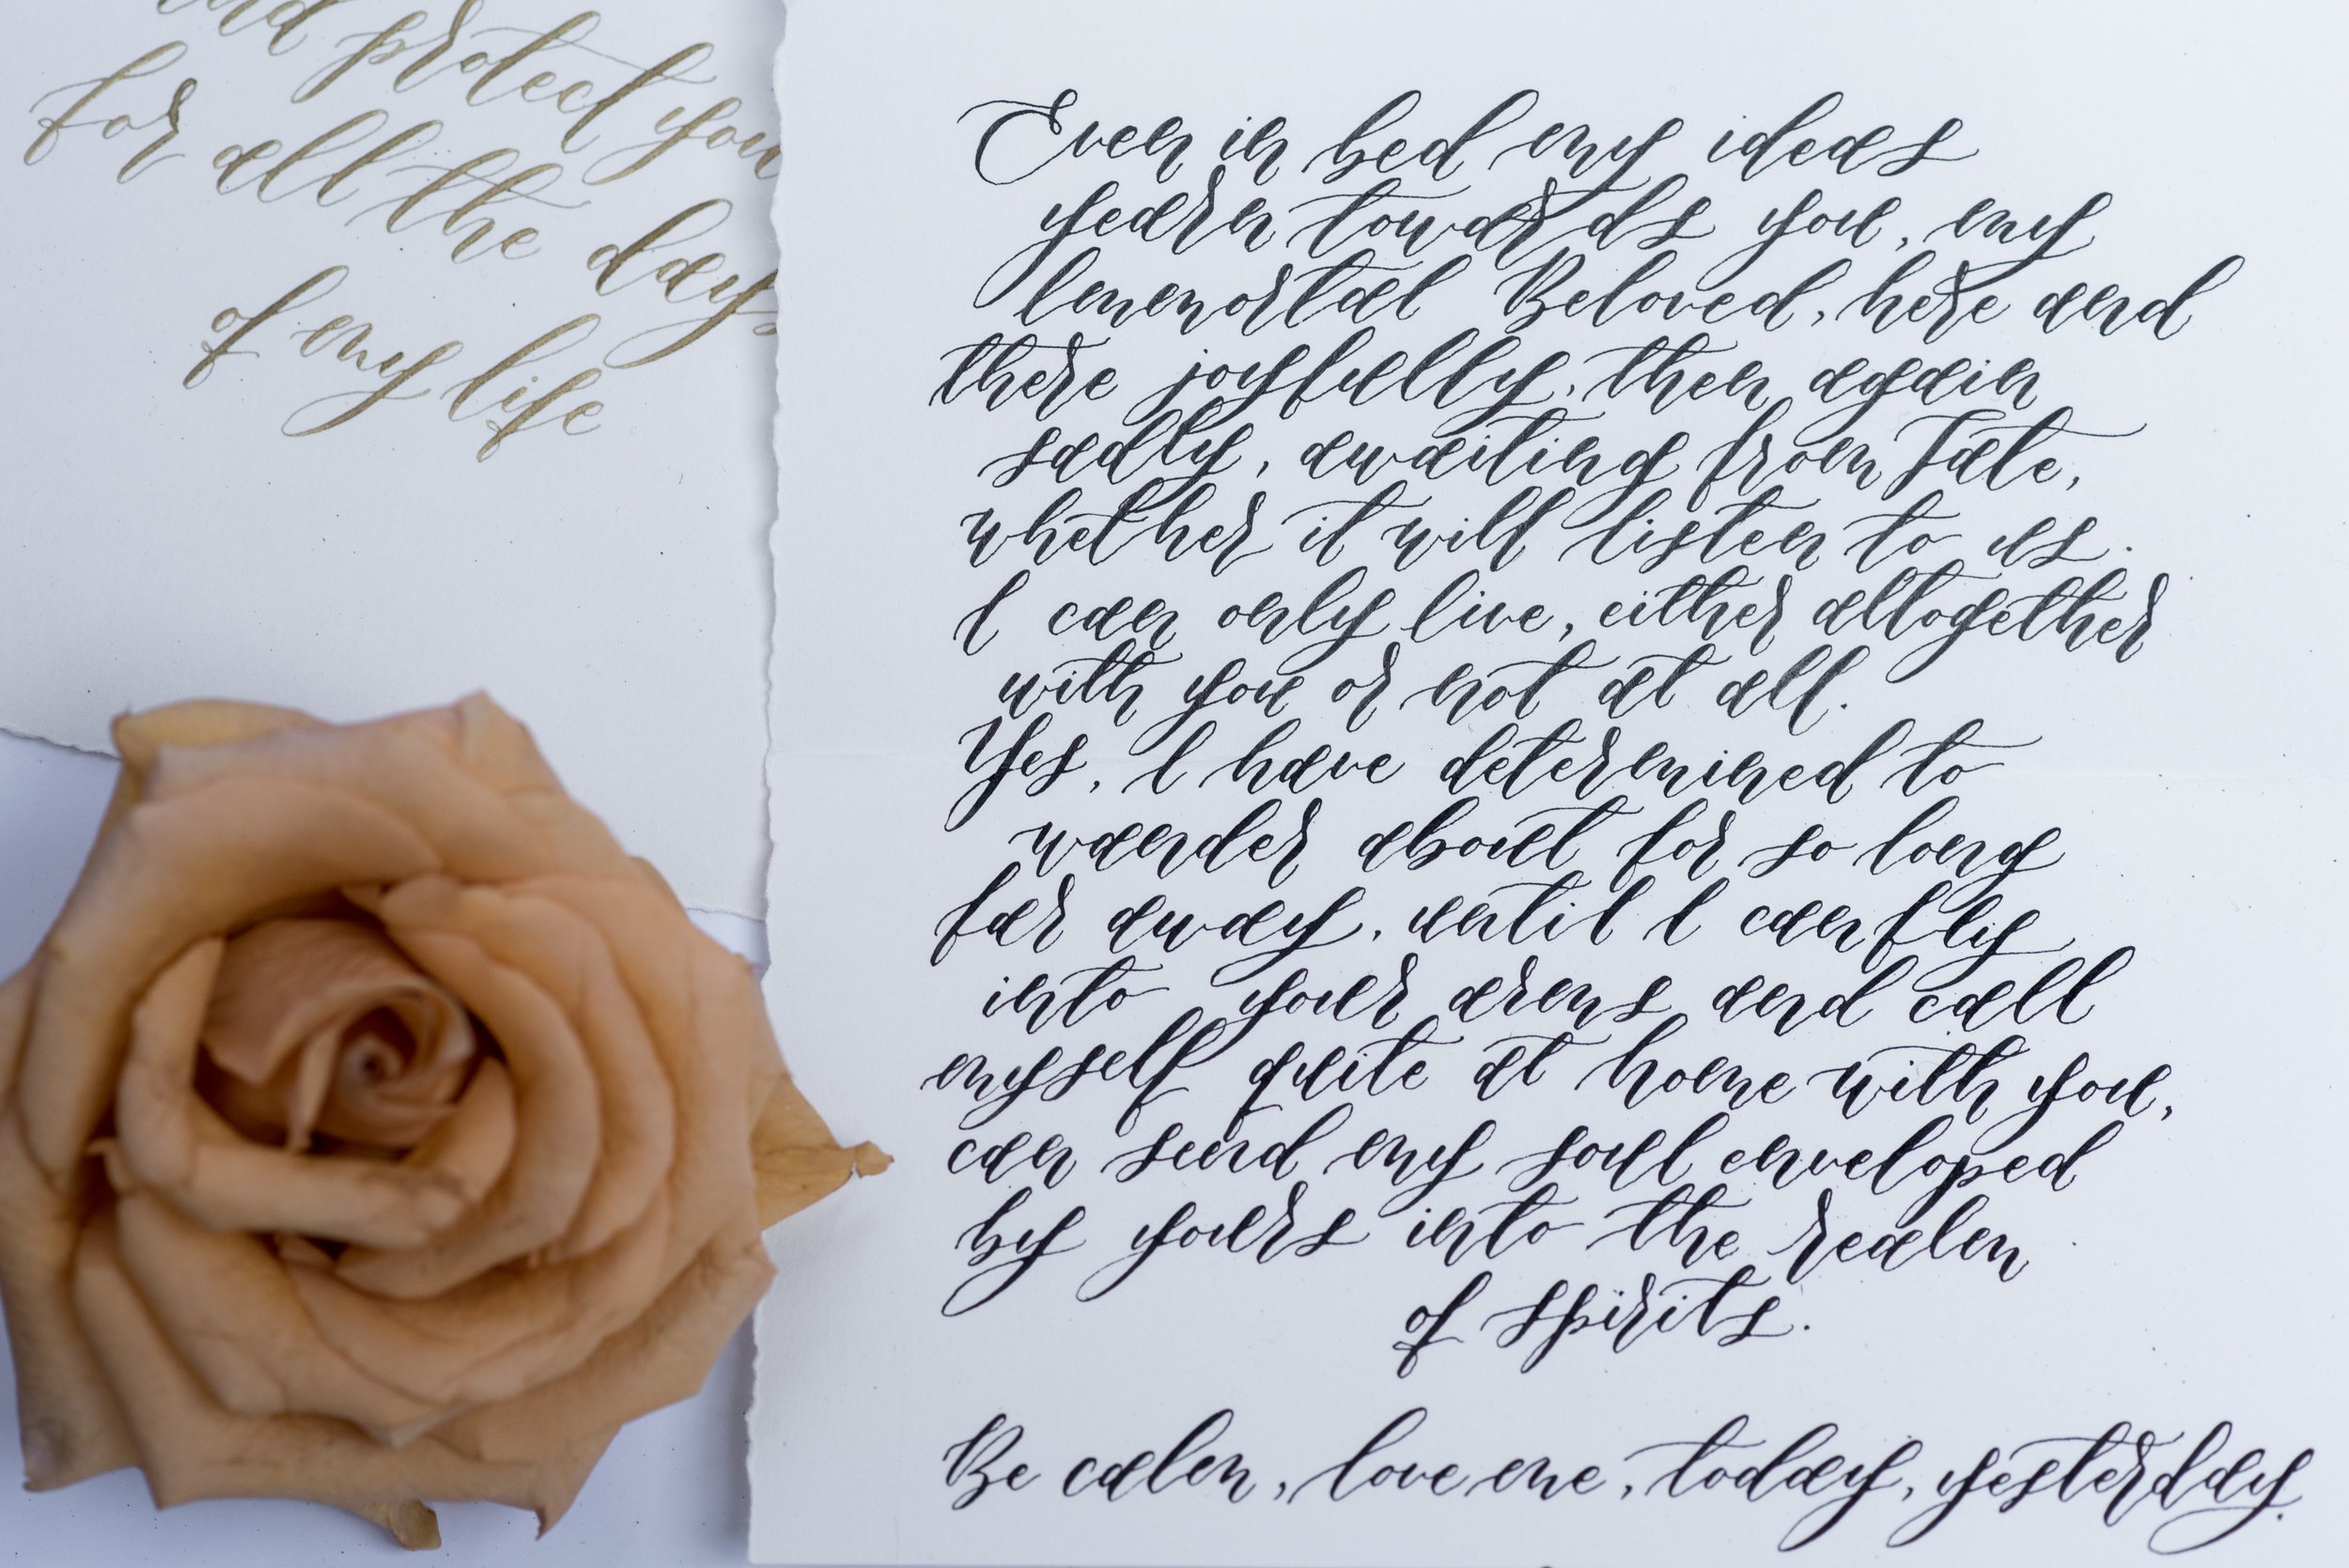 and protect you
for all the days
of my life
Even in bed my ideas
yearn towards you, my
Immortal Beloved, here and
there joyfully, then again
sadly, awaiting from Fate,
whether it will listen to us.
I can only live, either altogether
with you or not at all.
Yes, I have determined to
wander about for so long
far away, until I can fly
into your arms and call
myself quite at home with you,
can send my soul enveloped
by yours into the realm
of spirits.
Be calm, love me, today, yesterday.